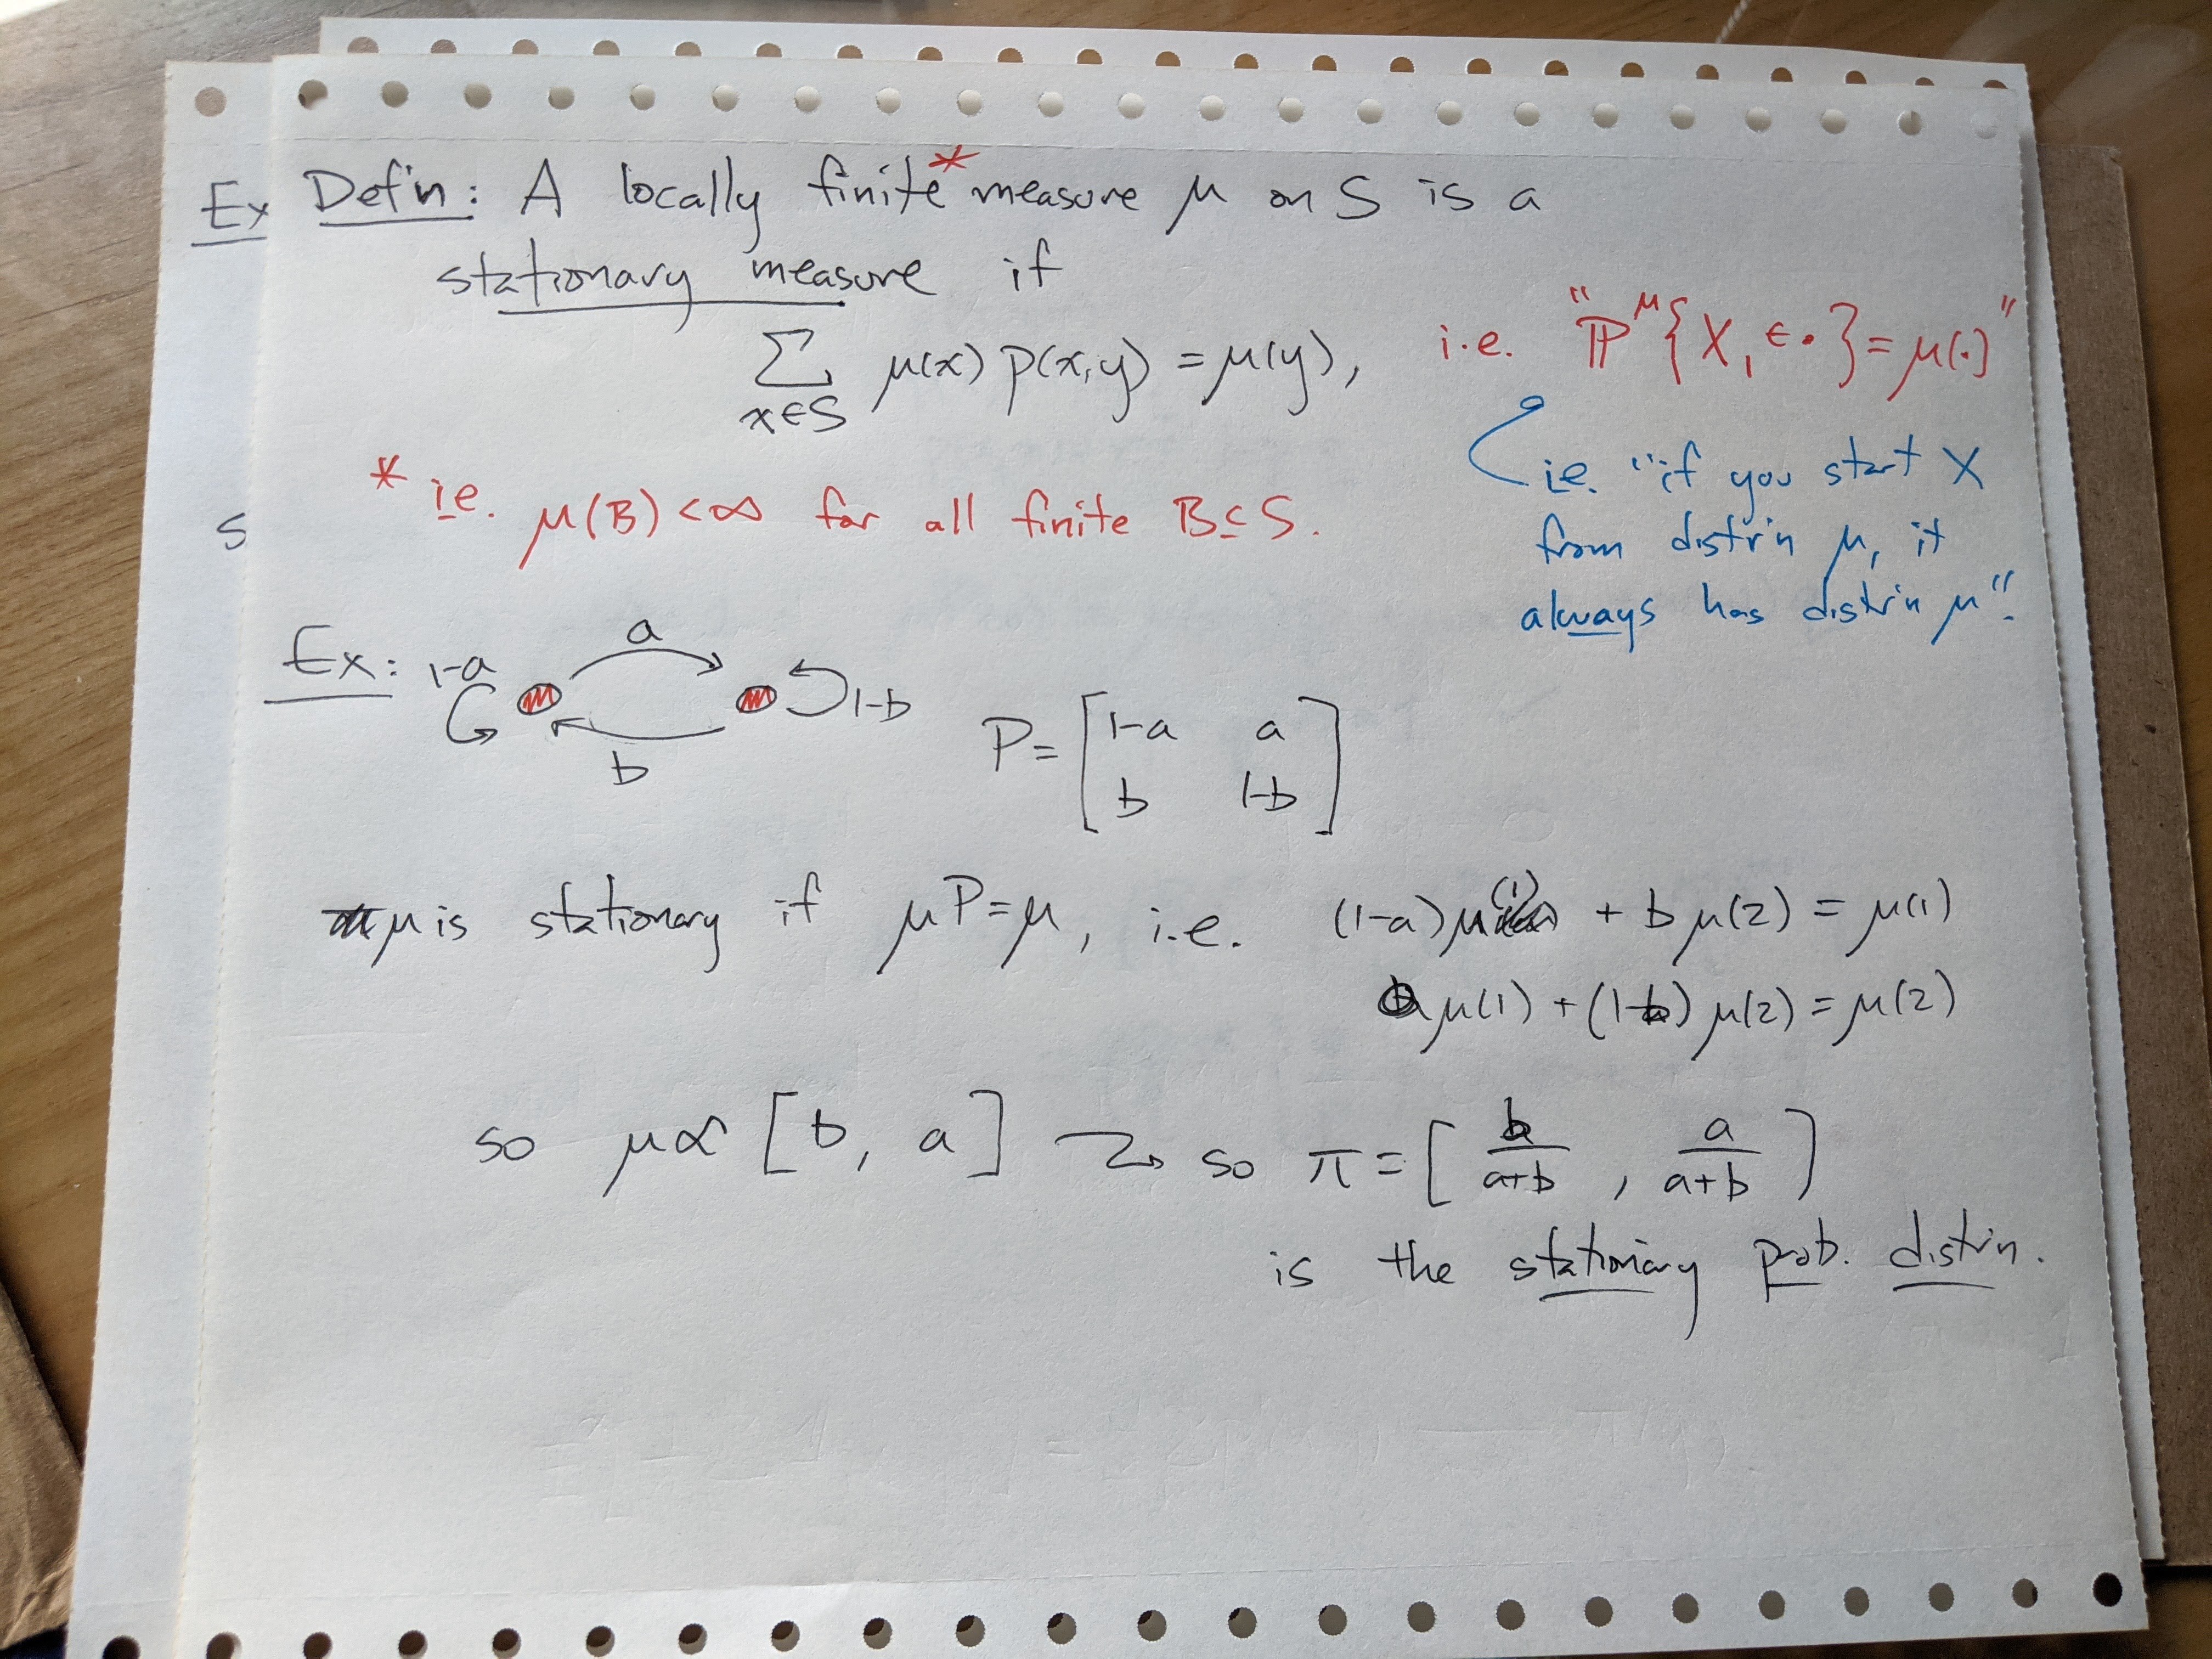 Ex
S
Def'n: A locally finite* measure μ on S is a
stationary measure if
∑_{x∈S} μ(x) p(x,y) = μ(y),
i.e. "ℙ^μ{X₁ ∈ •} = μ(•)"
i.e. "if you start X
from distr'n μ, it
always has distr'n μ".
* i.e. μ(B) < ∞ for all finite B ⊆ S.
Ex: 1-a a b 1-b
P = [1-a a
b 1-b]
μ is stationary if μP = μ, i.e. (1-a)μ(1) + bμ(2) = μ(1)
aμ(1) + (1-b)μ(2) = μ(2)
so μ ∝ [b, a] ⤳ so π = [b/(a+b), a/(a+b)]
is the stationary prob. distr'n.